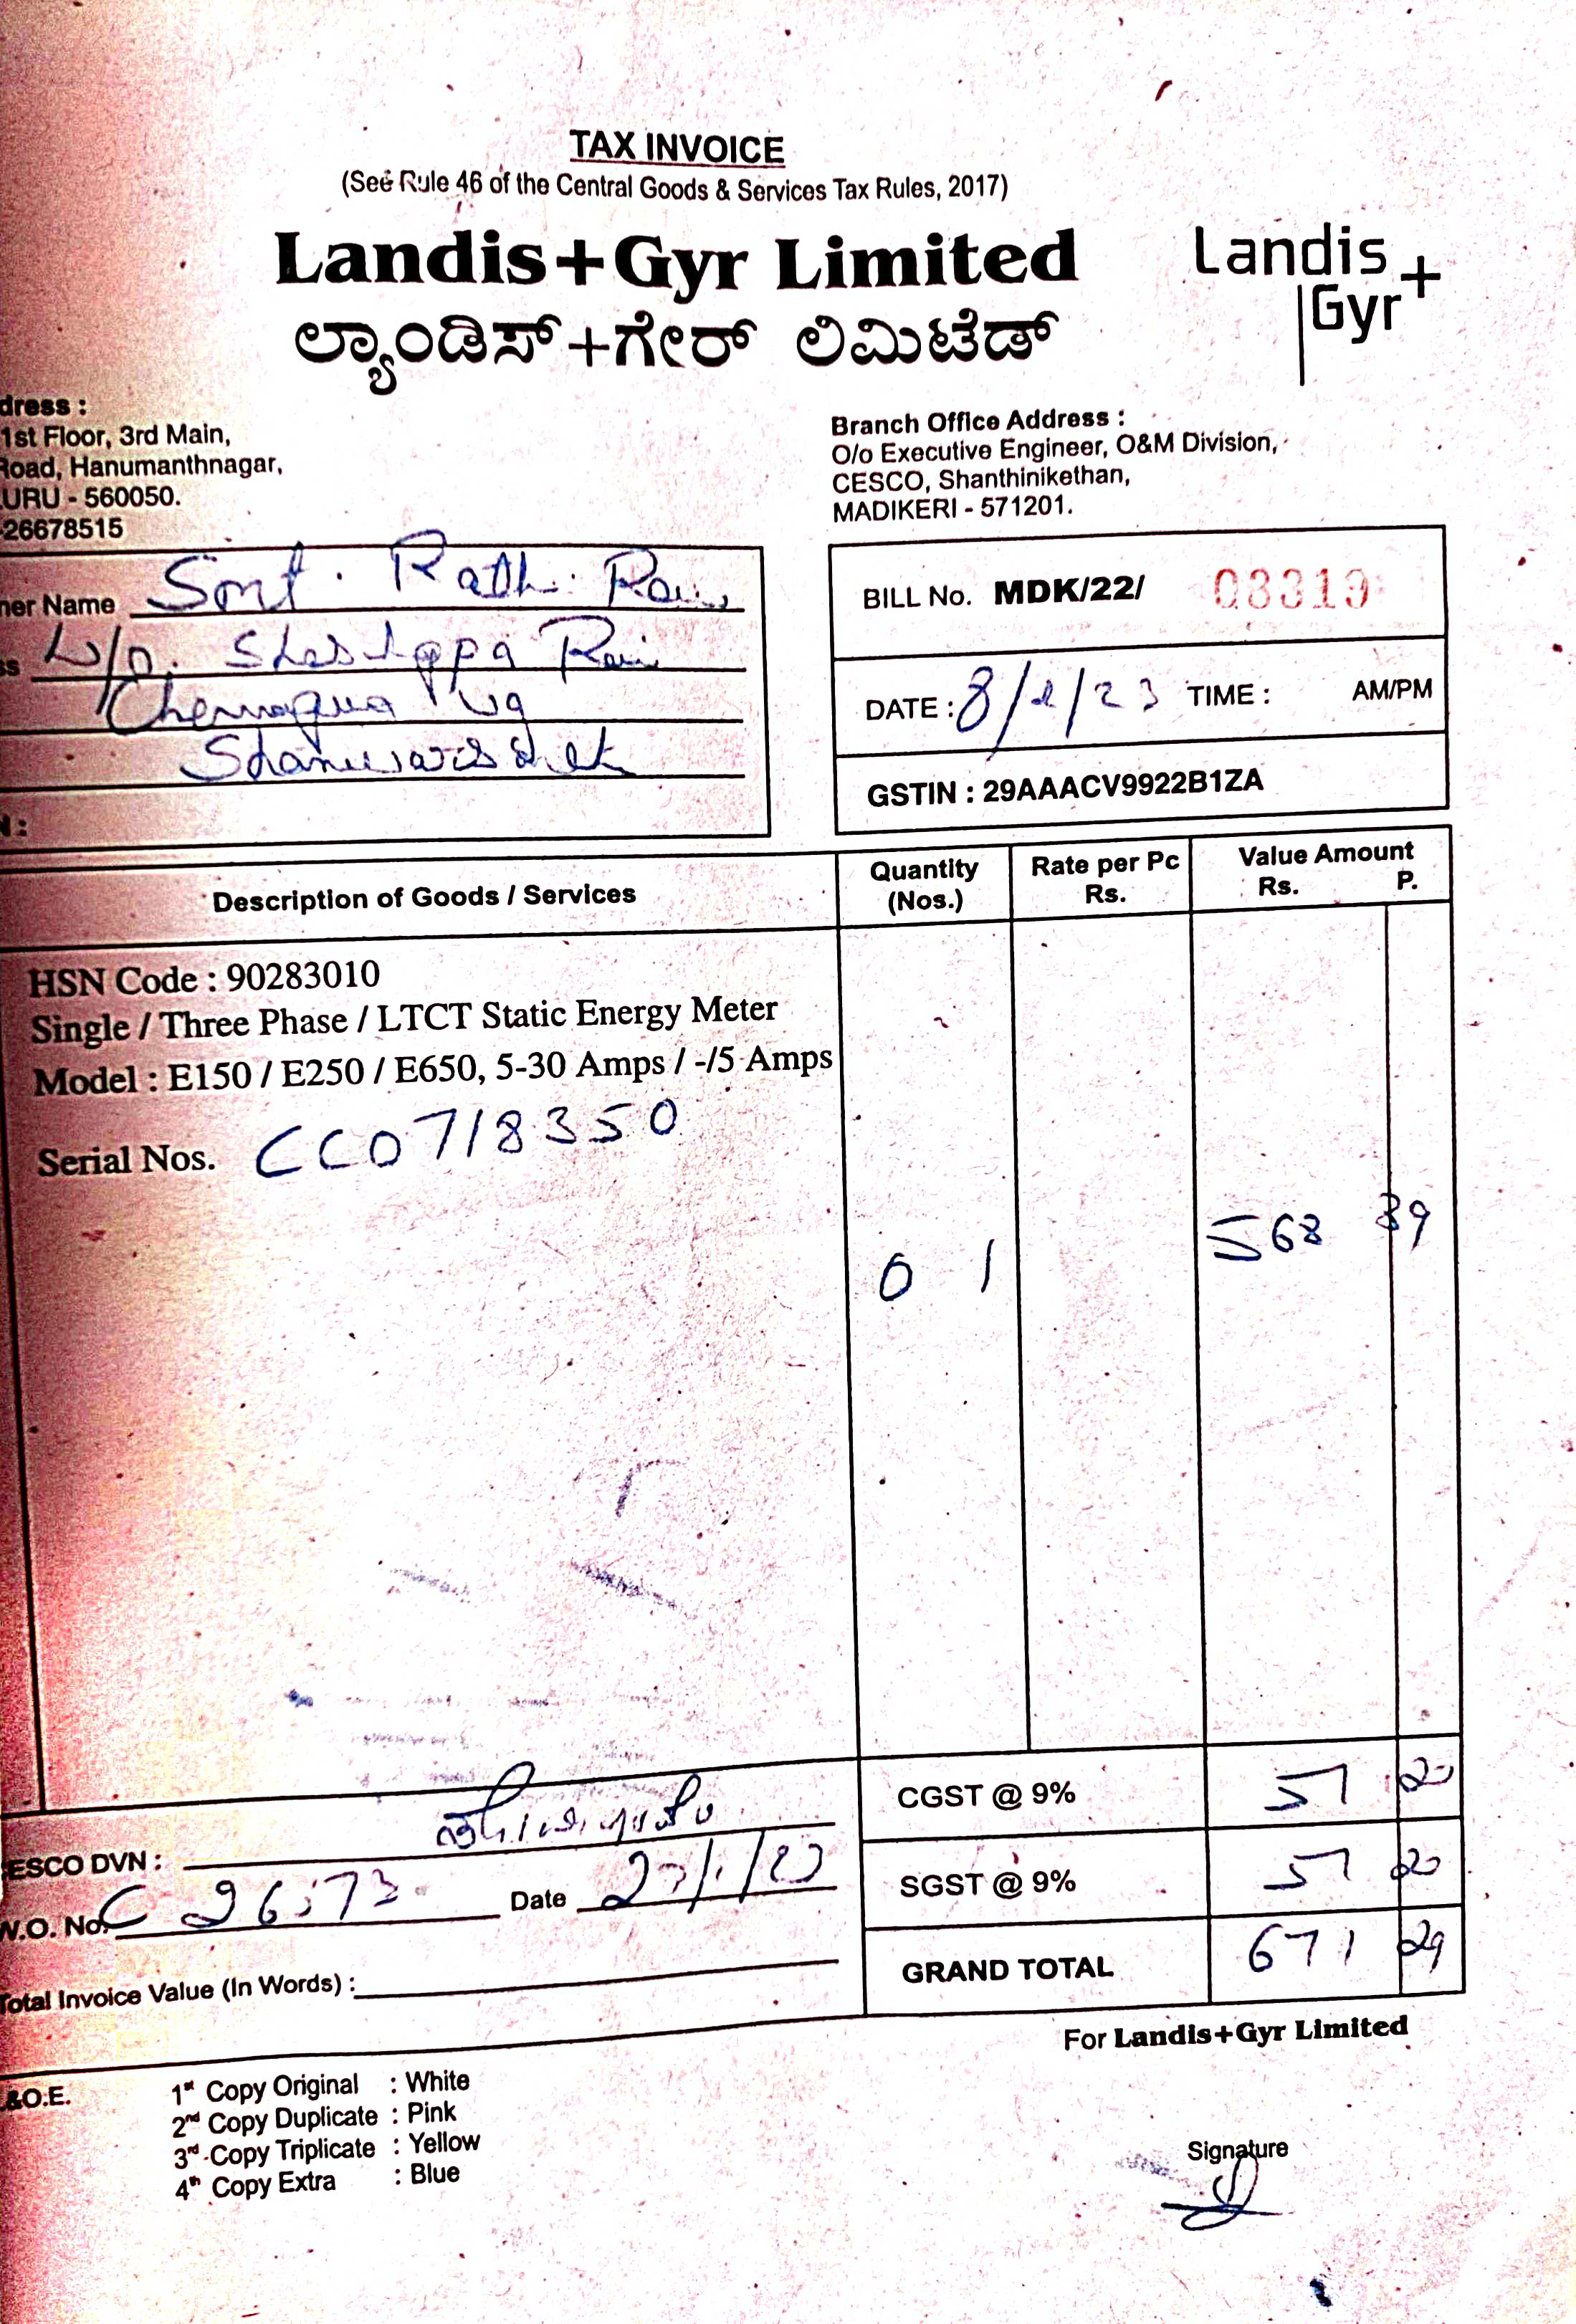 TAX INVOICE
(See Rule 46 of the Central Goods & Services Tax Rules, 2017)
Landis+Gyr Limited
ಲ್ಯಾಂಡಿಸ್+ಗೇರ್ ಲಿಮಿಟೆಡ್
Landis+
Gyr
dress :
1st Floor, 3rd Main,
Road, Hanumanthnagar,
URU - 560050.
26678515
Branch Office Address :
O/o Executive Engineer, O&M Division,
CESCO, Shanthinikethan,
MADIKERI - 571201.
ner Name Smt. Rathi Rai
ss W/o. Rai
N :
BILL No. MDK/22/ 03319
DATE : 8/2/23 TIME : AM/PM
GSTIN : 29AAACV9922B1ZA
Description of Goods / Services
Quantity (Nos.)
Rate per Pc Rs.
Value Amount Rs. P.
HSN Code : 90283010
Single / Three Phase / LTCT Static Energy Meter
Model : E150 / E250 / E650, 5-30 Amps / -/5 Amps
Serial Nos. CC0718350
01 568 89
CGST @ 9% 51 20
SGST @ 9% 51 20
GRAND TOTAL 671 29
ESCO DVN :
W.O. No. Date
Total Invoice Value (In Words) :
For Landis+Gyr Limited
&O.E.
1st Copy Original : White
2nd Copy Duplicate : Pink
3rd Copy Triplicate : Yellow
4th Copy Extra : Blue
Signature